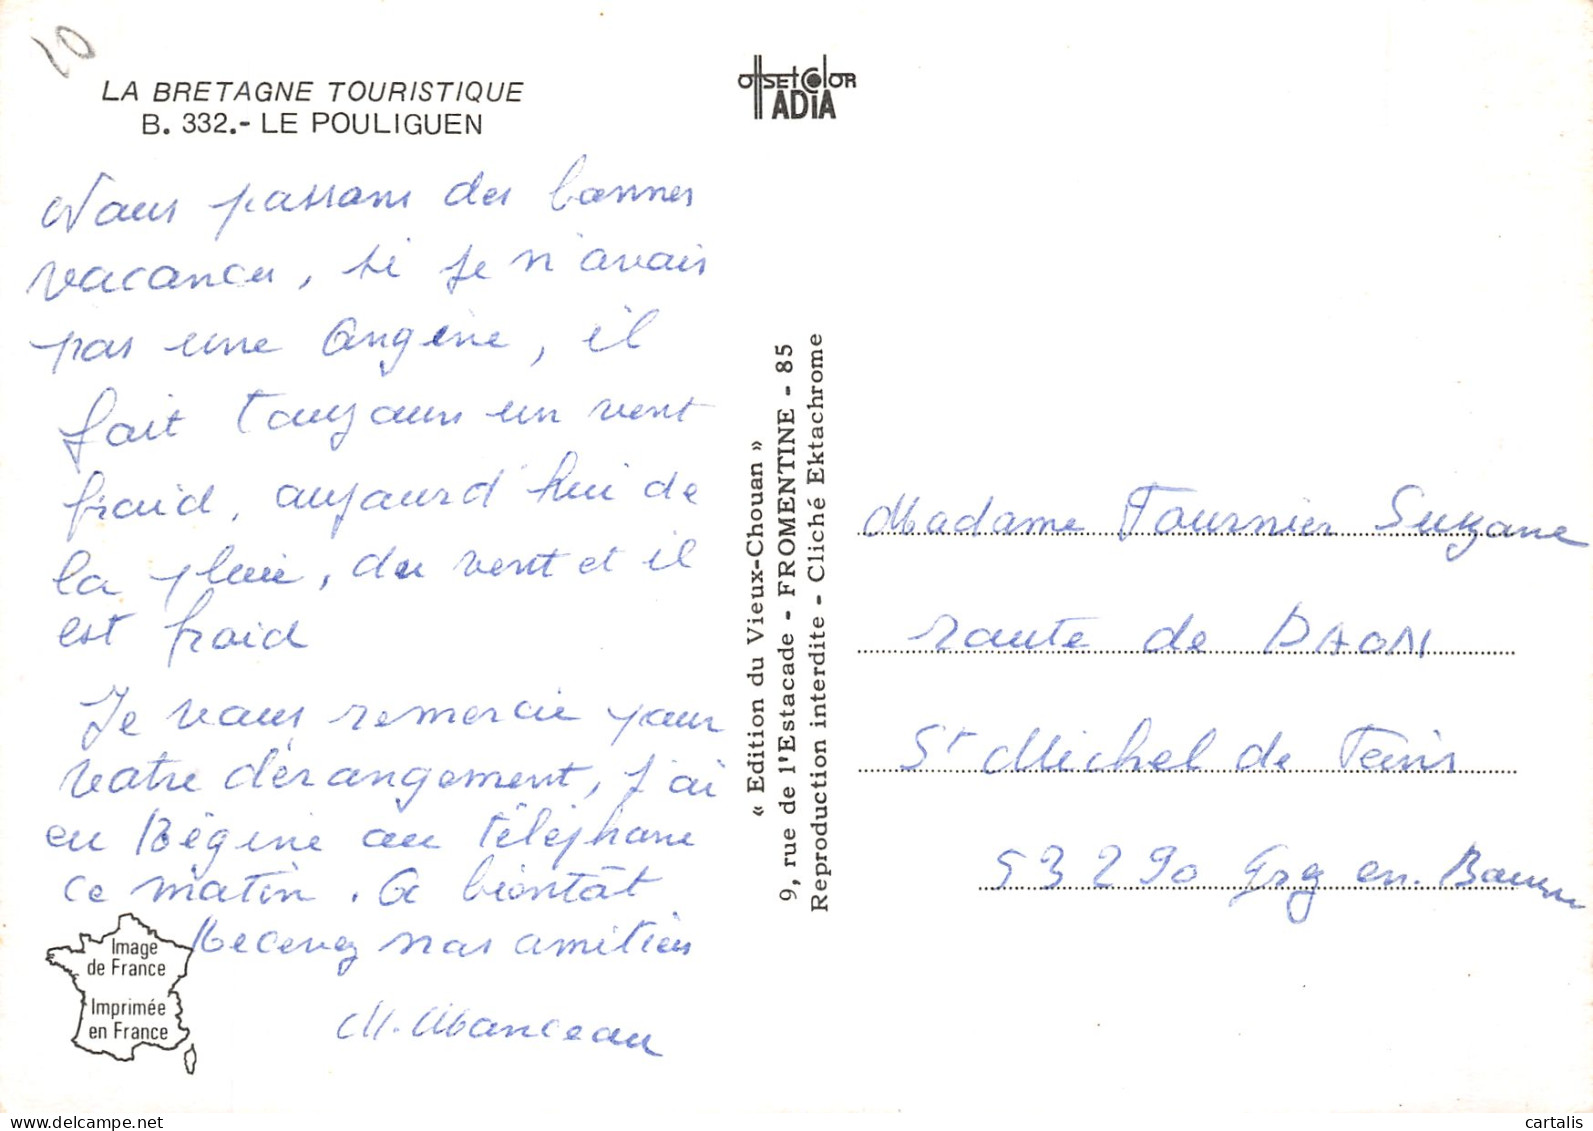 10
LA BRETAGNE TOURISTIQUE
B. 332.- LE POULIGUEN
offset color
ADIA
Nous passons des bonnes
vacances, si je n'avais
pas une Angine, il
fait Toujours un vent
froid, aujourd'hui de
la pluie, du vent et il
est froid
Je vous remercie pour
votre dérangement, j'ai
eu Régine au Téléphone
ce matin. A bientôt
Recevez nos amitiés
M. Manceau
Image
de France
Imprimée
en France
« Edition du Vieux-Chouan »
9, rue de l'Estacade - FROMENTINE - 85
Reproduction interdite - Cliché Ektachrome
Madame Fournier Suzane
route de DAON
St Michel de Feins
53290 Grez en. Bouere
cartalis delcampe.net